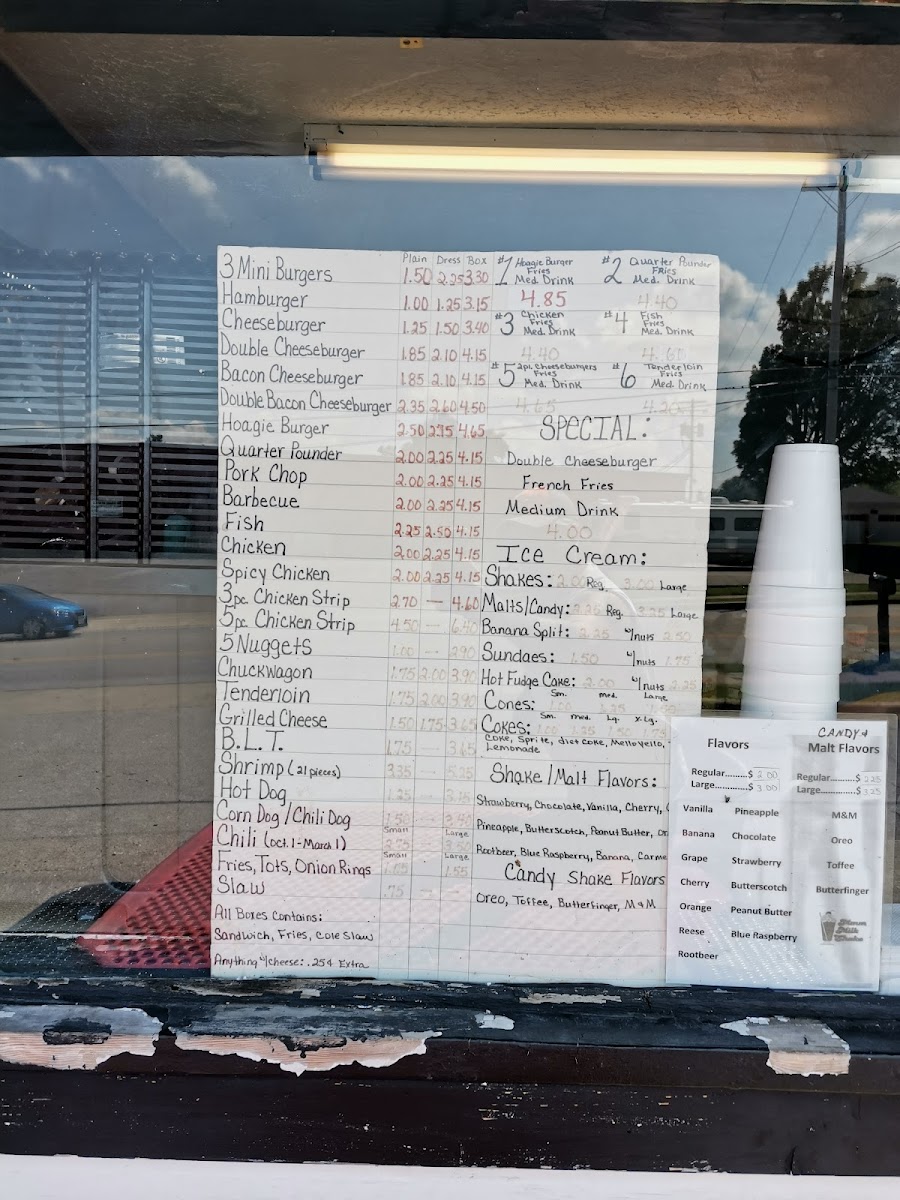 Plain Dress Box
3 Mini Burgers 1.50 2.25 3.30
Hamburger 1.00 1.25 3.15
Cheeseburger 1.25 1.50 3.40
Double Cheeseburger 1.85 2.10 4.15
Bacon Cheeseburger 1.85 2.10 4.15
Double Bacon Cheeseburger 2.35 2.60 4.50
Hoagie Burger 2.50 2.75 4.65
Quarter Pounder 2.00 2.25 4.15
Pork Chop 2.00 2.25 4.15
Barbecue 2.00 2.25 4.15
Fish 2.25 2.50 4.15
Chicken 2.00 2.25 4.15
Spicy Chicken 2.00 2.25 4.15
3pc Chicken Strip 2.70 — 4.60
5pc Chicken Strip 4.50 — 6.40
5 Nuggets 1.00 — 2.90
Chuckwagon 1.75 2.00 3.90
Tenderloin 1.75 2.00 3.90
Grilled Cheese 1.50 1.75 3.65
B.L.T. 1.75 3.65
Shrimp (21 pieces) 3.35 — 5.25
Hot Dog 1.25 — 3.15
Corn Dog/Chili Dog 1.50 3.40
Small Large
Chili (Oct. 1-March 1) 2.75 3.50
Small Large
Fries, Tots, Onion Rings 1.55
Slaw .75 —
All Boxes Contains:
Sandwich, Fries, Cole Slaw
Anything w/cheese: .25¢ Extra
#1 Hoagie Burger
Fries
Med. Drink
4.85
#2 Quarter Pounder
Fries
Med. Drink
4.40
#3 Chicken
Fries
Med. Drink
4.40
#4 Fish
Fries
Med. Drink
#5 2pl. Cheeseburgers
Fries
Med. Drink
4.65
#6 Tenderloin
Fries
Med. Drink
4.20
SPECIAL:
Double Cheeseburger
French Fries
Medium Drink
4.00
Ice Cream:
Shakes: 2.00 Reg. 3.00 Large
Malts/Candy: 2.25 Reg. 3.25 Large
Banana Split: 2.25 w/nuts 2.50
Sundaes: 1.50 w/nuts 1.75
Hot Fudge Cake: 2.00 w/nuts 2.25
Sm. med. Large
Cones: 1.00 1.25
Sm. Med. Lg. X-Lg.
Cokes: 1.00 1.25 1.50 1.75
Coke, Sprite, diet coke, Mello yello,
Lemonade
Shake/Malt Flavors:
Strawberry, Chocolate, Vanilla, Cherry,
Pineapple, Butterscotch, Peanut Butter, Or
Rootbeer, Blue Raspberry, Banana, Carme
Candy Shake Flavors
Oreo, Toffee, Butterfinger, M&M
Flavors
Regular.........$ 2.00
Large...........$ 3.00
Vanilla Pineapple
Banana Chocolate
Grape Strawberry
Cherry Butterscotch
Orange Peanut Butter
Reese Blue Raspberry
Rootbeer
CANDY &
Malt Flavors
Regular.........$ 2.25
Large...........$ 3.25
M&M
Oreo
Toffee
Butterfinger